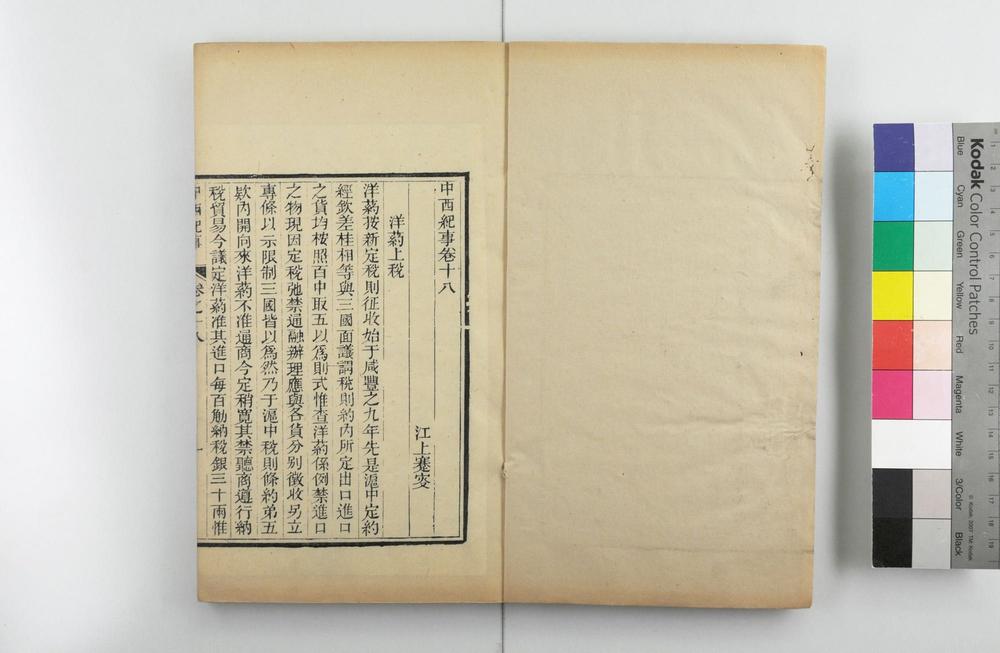 中西紀事卷十八
江上蹇叟
洋葯上稅
洋葯按新定稅則征收始于咸豐之九年先是滬中定約
經欽差桂相等與三國面議謂稅則約內所定出口進口
之貨均按照百中取五以爲則式惟查洋葯係例禁進口
之物現因定稅弛禁通融辦理應與各貨分別徵收另立
專條以示限制三國皆以爲然乃于滬中稅則條約弟五
欵內開向來洋葯不准通商今定稍寬其禁聽商遵行納
稅貿易今議定洋葯准其進口每百觔納稅銀三十兩惟
中西紀事
卷之十八
一
Kodak Color Control Patches
Blue
Cyan
Green
Yellow
Red
Magenta
White
3/Color
Black
© Kodak, 2007 TM: Kodak